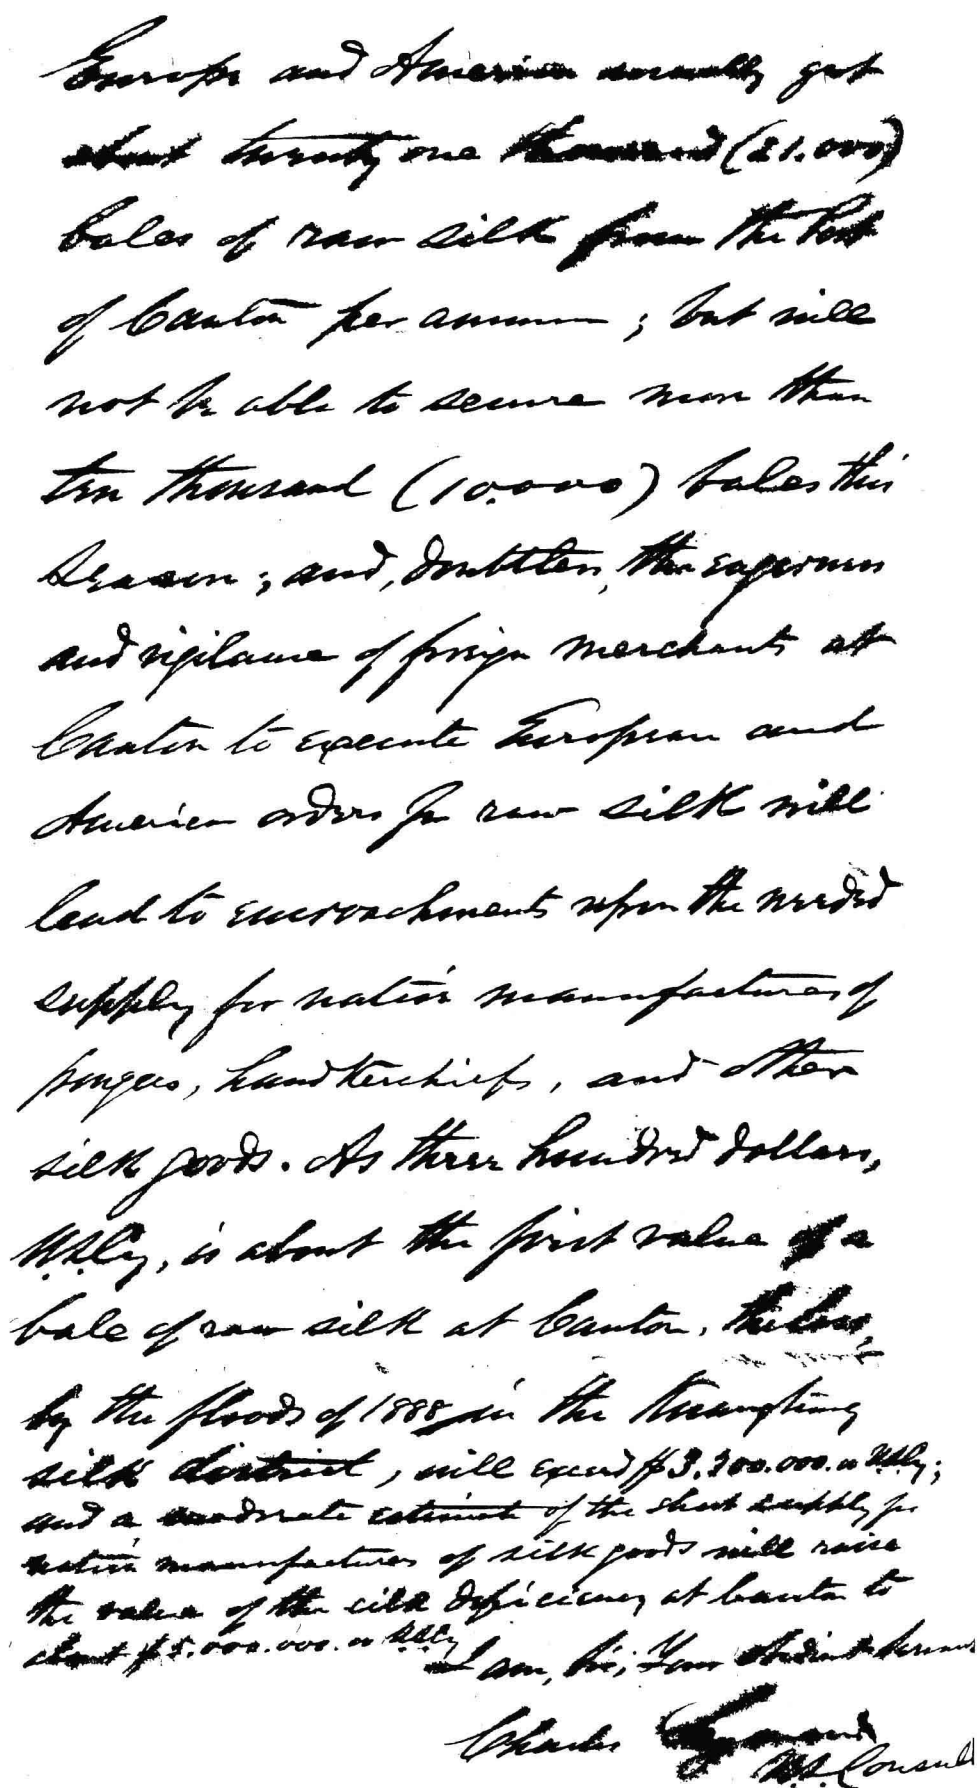 Europe and America annually get
about twenty one thousand (21.000)
bales of raw silk from the Port
of Canton per annum; but will
not be able to secure more than
ten thousand (10.000) bales this
season; and, doubtless, the eagerness
and vigilance of foreign merchants at
Canton to execute European and
American orders for raw silk will
lead to encroachments upon the needed
supply for native manufactures of
pongees, handkerchiefs, and other
silk goods. As three hundred dollars,
U.S.Cy, is about the first value of a
bale of raw silk at Canton, the loss,
by the floods of 1888, in the
silk district, will exceed $3.300.000.00 U.S.Cy;
and a moderate estimate of the short supply for
native manufactures of silk goods will raise
the value of the silk deficiency at Canton to
about $5.000.000.00 U.S.Cy
I am, Sir, Your Obedient Servant
Charles Seymour
U.S. Consul